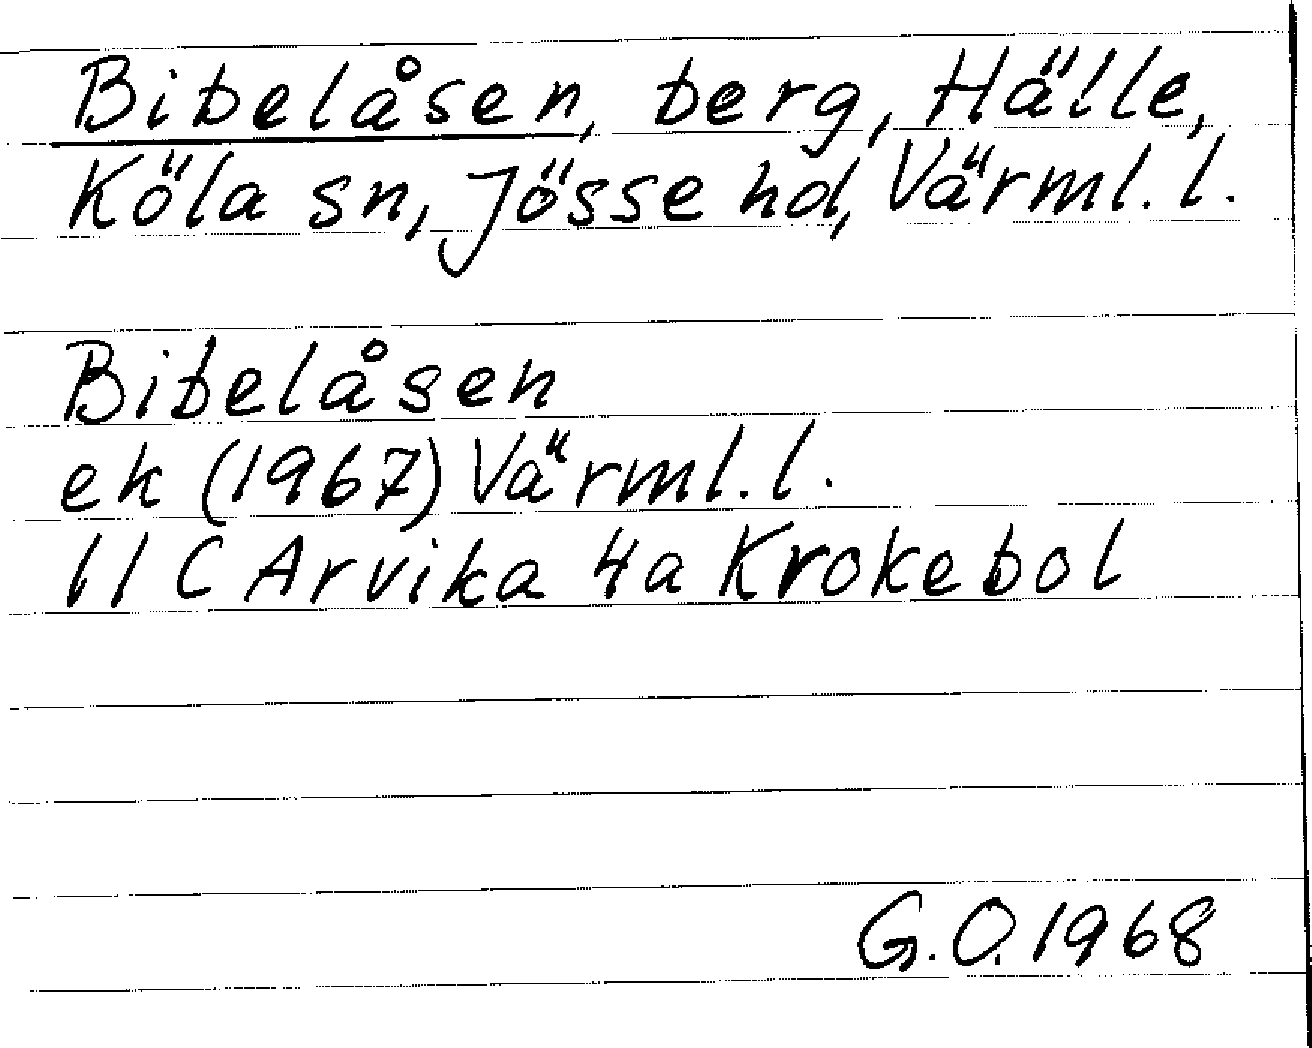 Bibelåsen, berg, Hälle,
Köla sn, Jösse hd, Värml. l.
Bibelåsen
ek (1967) Värml. l.
11 C Arvika 4a Krokebol
G.O. 1968